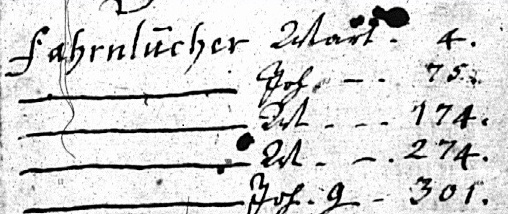 Fahrnlücher Mart. - 4.
Joh. - - 75.
M. - - 174.
M. - - 274.
Joh. g - 301.